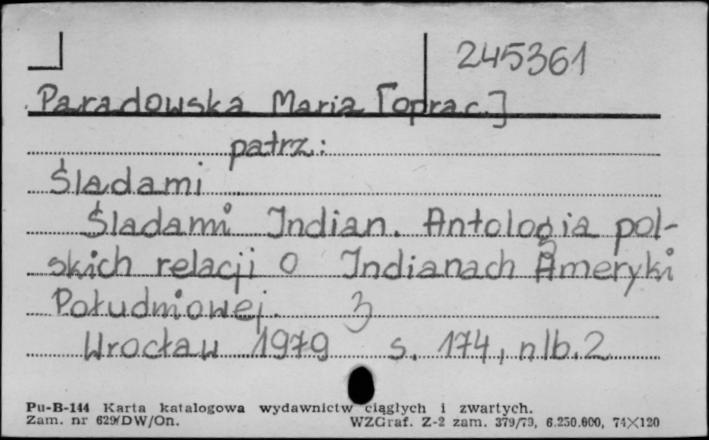 245361
Paradowska Maria [oprac.]
patrz:
Śladami
Śladami Indian. Antologia pol-
skich relacji o Indianach Ameryki
Południowej. 3
Wrocław 1979 s. 174, nlb. 2
Pu-B-144 Karta katalogowa wydawnictw ciągłych i zwartych.
Zam. nr 629/DW/On. WZGraf. Z-2 zam. 379/79, 6.250.000, 74×120